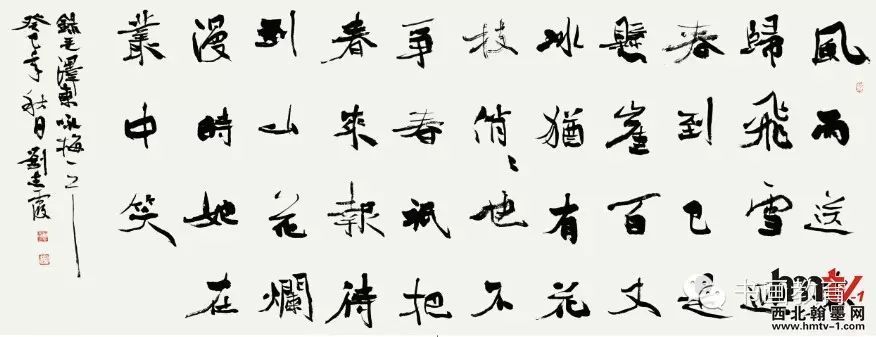 風雨送
歸飛雪迎
春到已是
懸崖百丈
冰猶有花
枝俏〻也不
爭春祇把
春來報待
到山花爛
漫時她在
叢中笑
錄毛澤東詠梅
癸巳年秋月劉志霞
书画教育
hmtv-1
西北翰墨网
www.hmtv-1.com